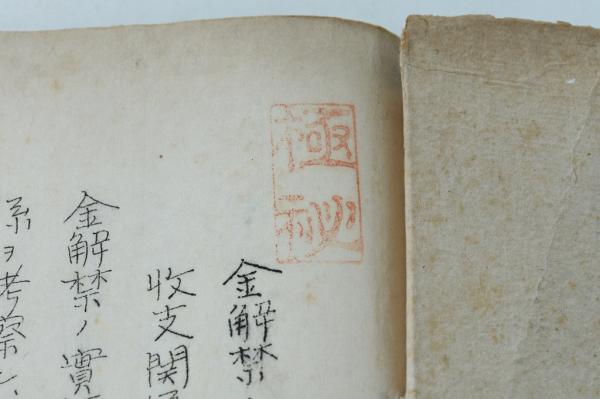 極秘
金解禁
収支関
金解禁ノ實
系ヲ考察シ